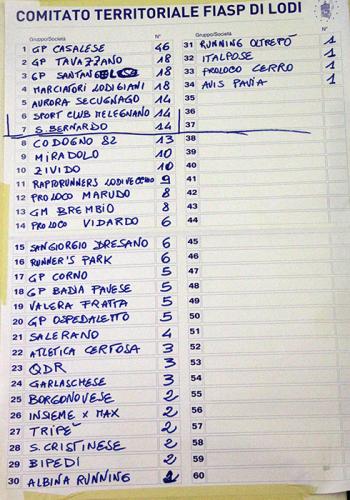 COMITATO TERRITORIALE FIASP DI LODI
Gruppo/Società N°
1 GP CASALESE 46
2 GP TAVAZZANO 18
3 GP SANTANGELO 18
4 MARCIATORI LODIGIANI 18
5 AURORA SECUGNAGO 14
6 SPORT CLUB MELEGNANO 14
7 S. BERNARDO 14
8 CODOGNO 82 13
9 MIRADOLO 10
10 ZIVIDO 10
11 RAPTORUNNERS LODIVECCHIO 9
12 PRO LOCO MARUDO 8
13 GM BREMBIO 8
14 PRO LOCO VIDARDO 6
15 SANGIORGIO DRESANO 6
16 RUNNER'S PARK 6
17 GP CORNO 5
18 GP BADIA PAVESE 5
19 VALERA FRATTA 5
20 GP OSPEDALETTO 5
21 SALERANO 4
22 ATLETICA CERTOSA 3
23 QDR 3
24 GARLASCHESE 3
25 BORGONOVESE 2
26 INSIEME X MAX 2
27 TRIPE' 2
28 S. CRISTINESE 2
29 BIPEDI 2
30 ALBINA RUNNING 2
Gruppo/Società N°
31 RUNNING OLTREPÒ 1
32 ITALPOSE 1
33 PROLOCO CERRO 1
34 AVIS PAVIA 1
35
36
37
38
39
40
41
42
43
44
45
46
47
48
49
50
51
52
53
54
55
56
57
58
59
60